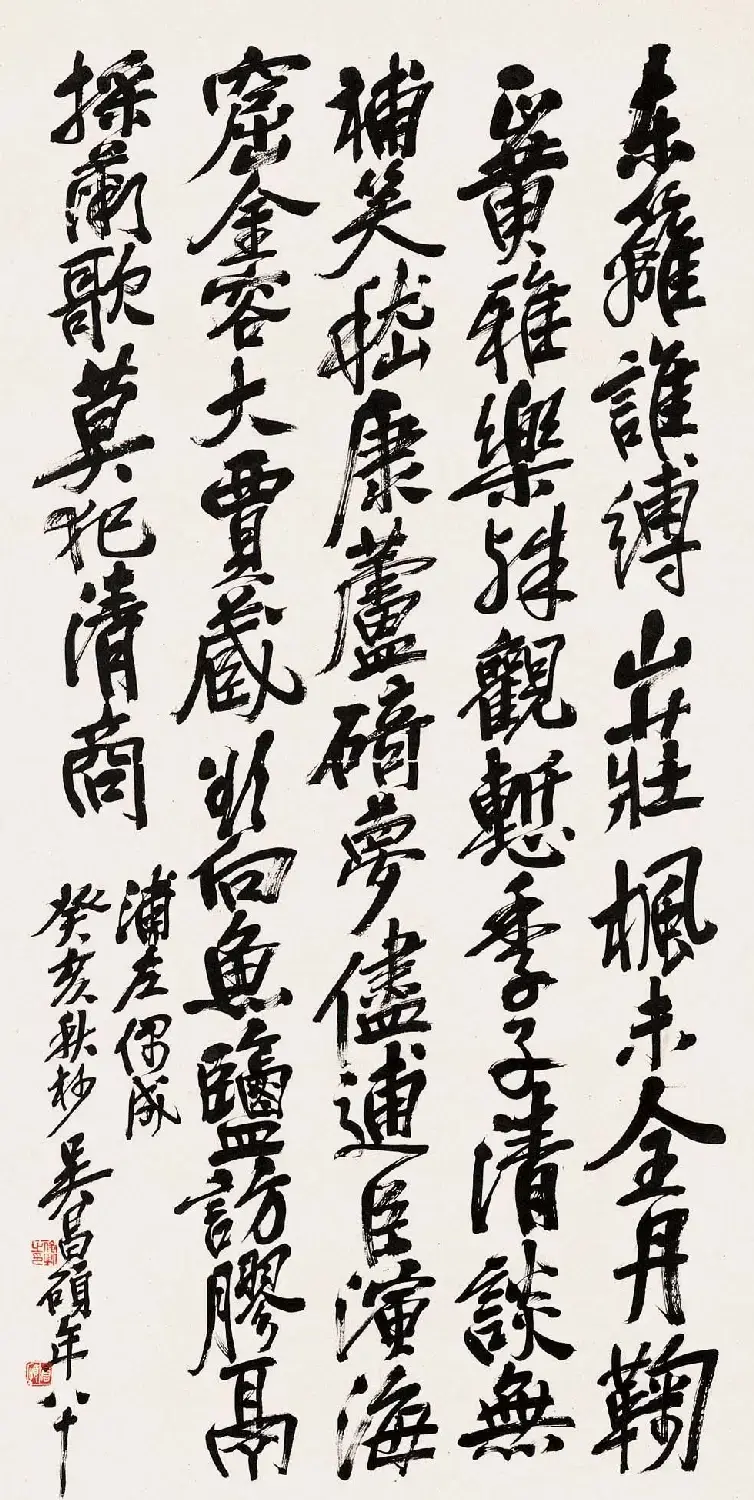 東籬誰縛山莊楓未全丹鞠
正黃雅樂殊觀慙季子清談無
補笑嵇康蘆碕夢儘逋臣演海
窟金容大賈藏向魚鹽訪膠鬲
採薇歌莫犯清商
浦左偶成
癸亥秋杪吳昌碩年八十